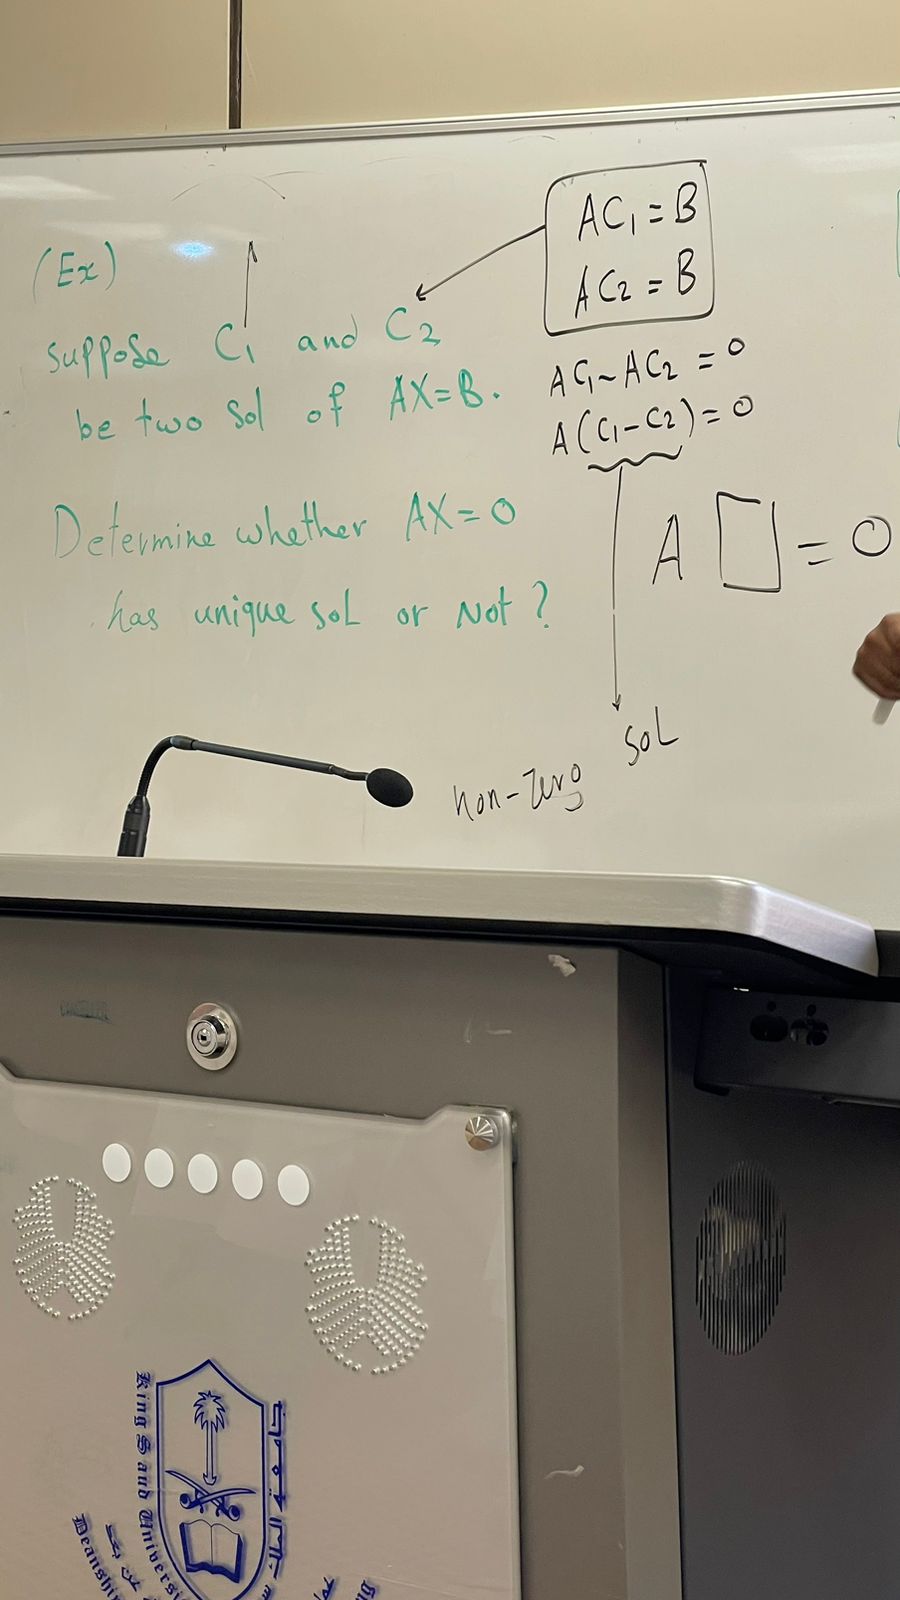 (Ex)
suppose C₁ and C₂
be two Sol of AX=B.
Determine whether AX=0
has unique soL or Not ?
AC₁=B
AC₂=B
AC₁-AC₂=0
A(C₁-C₂)=0
A = 0
soL
non-zero
King Saud Universi
Deanshi